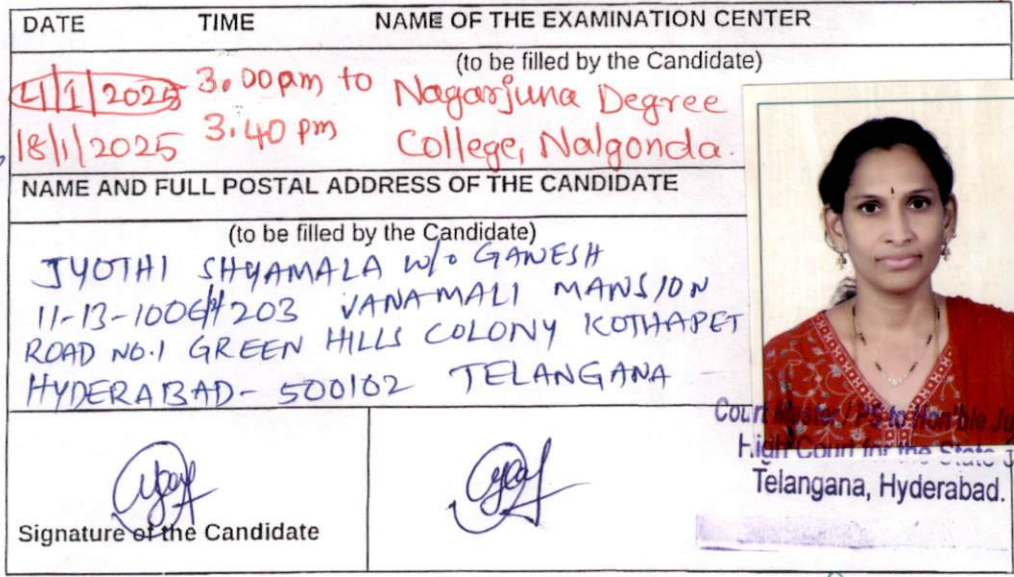 DATE TIME NAME OF THE EXAMINATION CENTER
(to be filled by the Candidate)
4/1/2025 3.00pm to Nagarjuna Degree
18/1/2025 3.40 pm College, Nalgonda.
NAME AND FULL POSTAL ADDRESS OF THE CANDIDATE
(to be filled by the Candidate)
JYOTHI SHYAMALA W/o GANESH
203 VANAMALI MANSION
ROAD NO.1 GREEN HILLS COLONY KOTHAPET
HYDERABAD - 500102 TELANGANA
Court Master / PS to Hon'ble
High Court for the State
Telangana, Hyderabad.
Signature of the Candidate